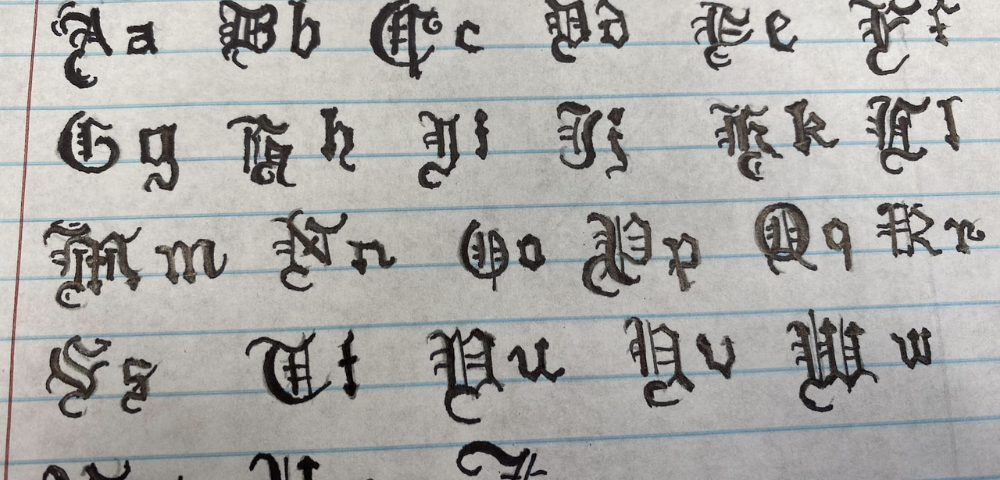 A a B b C c D d E e F f
G g H h I i J j K k L l
M m N n O o P p Q q R r
S s T t U u V v W w